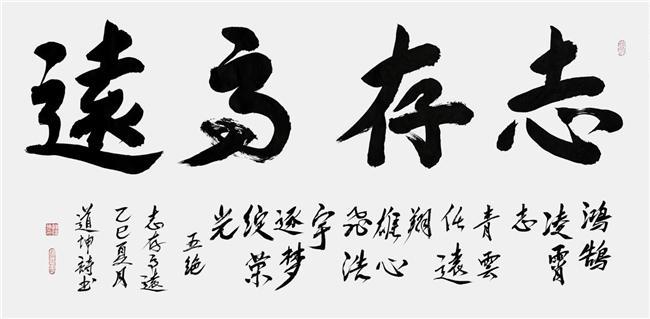 志存高遠
鴻鵠
凌霄
志
青雲
任遠
翔
雄心
飛浩
宇
逐夢
綻榮
光
五绝
志存高遠
乙巳夏月
道坤詩书